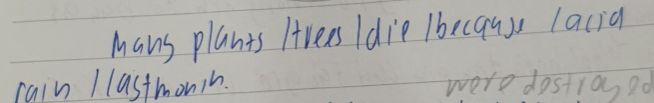 Many plants / trees / die / because / acid
rain / last month.
were destroyed